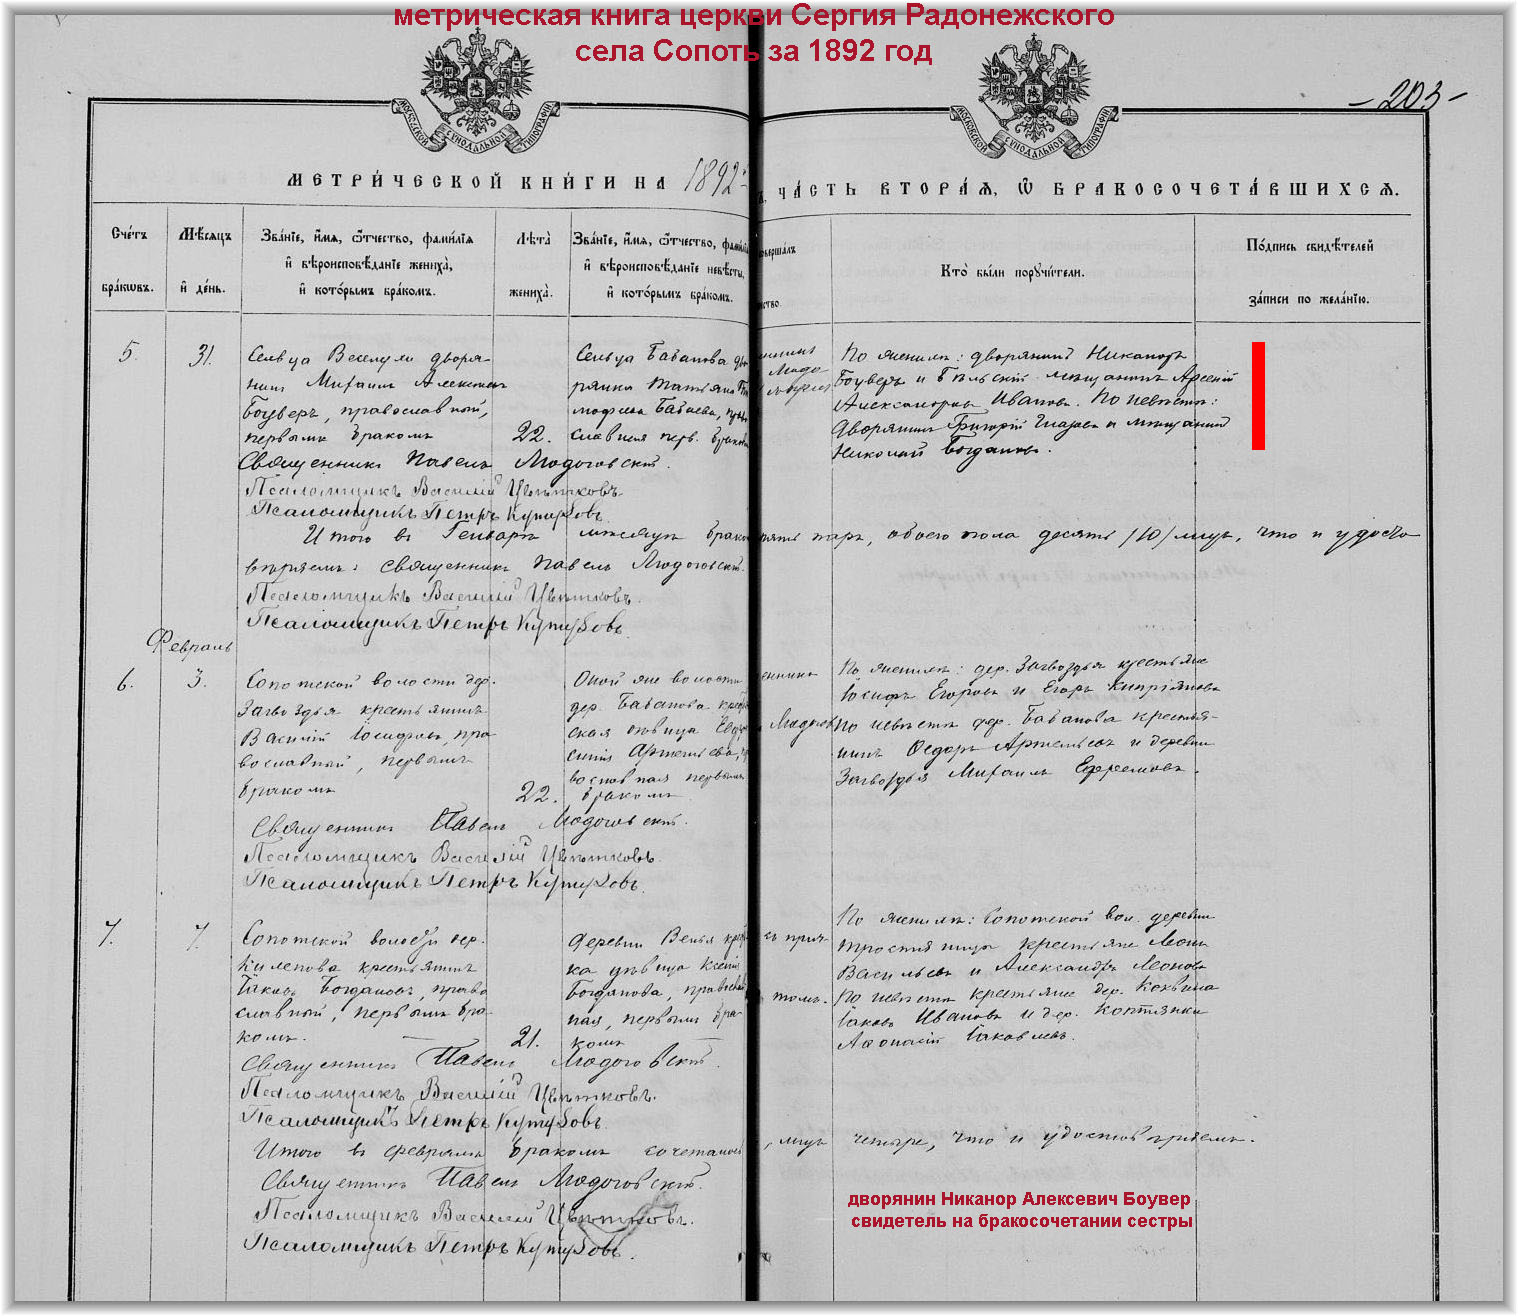 метрическая книга церкви Сергия Радонежского
села Сопоть за 1892 год
МОСКОВСКОЙ СѴНОДАЛЬНОЙ ТИПОГРАФІИ
МОСКОВСКОЙ СѴНОДАЛЬНОЙ ТИПОГРАФІИ
-203-
МЕТРИ́ЧЕСКОЙ КНИ́ГИ НА 1892
ЧА́СТЬ ВТОРА́Ѧ, Ѿ БРАКОСОЧЕТА́ВШИХСѦ.
Сче́тъ бра́кѡвъ.
Мѣ́сѧцъ и҆ де́нь.
Зва́нїе, и҆́мѧ, ѻ҆́тчество, фами́лїѧ и҆ вѣроисповѣ́данїе жениха̀, и҆ кото́рымъ бра́комъ.
Лѣта̀ жениха̀.
Зва́нїе, и҆́мѧ, ѻ҆́тчество, фами́лїѧ и҆ вѣроисповѣ́данїе невѣ́сты, и҆ кото́рымъ бра́комъ.
соверша́лъ
Кто̀ бы́ли порꙋчи́тели.
По́дпись свидѣ́телей за́писи по жела́нїю.
5.
31.
Сельца Веселули дворя-
нинъ Михаилъ Алексѣевъ
Боуверъ, православный,
первымъ бракомъ
22.
Сельца Бабанова дво
рянка Татьяна
православная перв. бракомъ
По женихѣ: дворянинъ Никаноръ
Боуверъ и Бѣльскій мѣщанинъ Арсеній
Александровъ Ивановъ. По невѣстѣ:
Дворянинъ Григорій и мѣщанинъ
Николай Богдановъ.
Священникъ Павелъ Модоговскій.
Псаломщикъ Василій Цвѣтковъ.
Псаломщикъ Петръ Кутузовъ.
Итого въ Генварѣ мѣсяцѣ браковъ пять паръ, обоего пола десять /10/ лицъ, что и удосто-
вѣряемъ: Священникъ Павелъ Модоговскій.
Псаломщикъ Василій Цвѣтковъ.
Псаломщикъ Петръ Кутузовъ.
Февраль
6.
3.
Сопотской волости дер.
Загвоздья крестьянинъ
Василій Іосифовъ, пра
вославный, первымъ
бракомъ
22.
Оной же волости
дер. Бабанова крестьян
ская дѣвица Евдо
Артемьева,
вославная первымъ
бракомъ.
По женихѣ: дер. Загвоздья крестьяне
Іосифъ Егоровъ и Егоръ Кипріяновъ
По невѣстѣ дер. Бабанова крестья-
нинъ Ѳедоръ Артемьевъ и деревни
Загвоздья Михаилъ Ефремовъ.
Священникъ Павелъ Модоговскій.
Псаломщикъ Василій Цвѣтковъ.
Псаломщикъ Петръ Кутузовъ.
7.
7.
Сопотской волости дер.
крестьянинъ
Іаковъ Богдановъ, право
славный, первымъ бра-
комъ.
21.
Деревни Велья крестьян
ка дѣвица Ксенія
Богданова, православ
ная, первымъ бра-
комъ
По женихѣ: Сопотской вол. деревни
крестьяне Леонъ
Васильевъ и Александръ Леоновъ
По невѣстѣ крестьяне дер.
Іаковъ Ивановъ и дер.
Афонасій Іаковлевъ.
Священникъ Павелъ Модоговскій.
Псаломщикъ Василій Цвѣтковъ.
Псаломщикъ Петръ Кутузовъ.
Итого въ февралѣ бракомъ сочеталось лицъ четыре, что и удостовѣряемъ.
Священникъ Павелъ Модоговскій.
Псаломщикъ Василій Цвѣтковъ.
Псаломщикъ Петръ Кутузовъ.
дворянин Никанор Алексевич Боувер
свидетель на бракосочетании сестры